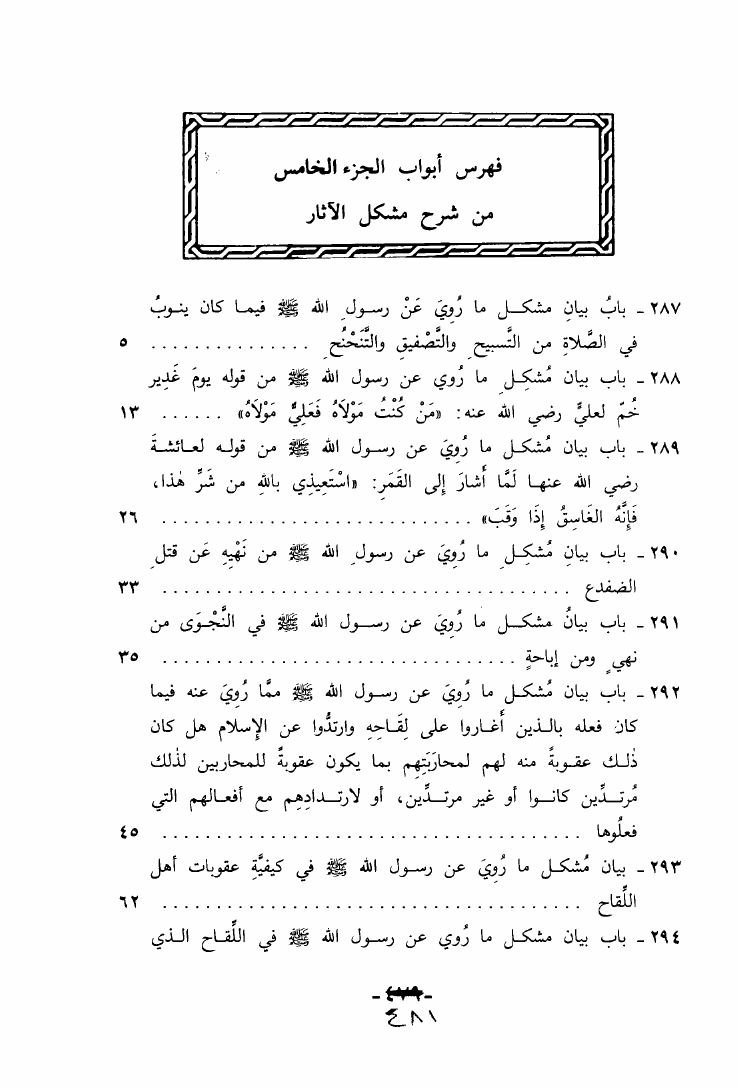 فهرس أبواب الجزء الخامس
من شرح مشكل الآثار
٢٨٧ - بابُ بيانِ مشكــل ما رُوِيَ عَنْ رسـولِ الله ﷺ فيمـا كان ينـوبُ
في الصَّلاةِ من التَّسبيحِ والتَّصْفيقِ والتَّنَحْنُحِ . . . . . . . . . . . . . . . ٥
٢٨٨ - باب بيان مُشكِـلِ ما رُوي عن رسول الله ﷺ من قوله يومَ غَدِير
خُمّ لعليٍّ رضي الله عنه: «مَنْ كُنْتُ مَوْلَاهُ فَعَلِيٌّ مَوْلَاهُ» . . . . . . ١٣
٢٨٩ - باب بيان مُشكـل ما رُوِيَ عن رسـول الله ﷺ من قولـه لعـائشـةَ
رضي الله عنهـا لَمَّا أَشارَ إلى القَمَرِ: «اسْتَعِيذِي باللهِ من شَرِّ هٰذا،
فَإِنَّهُ الغَاسِقُ إِذَا وَقَبَ» . . . . . . . . . . . . . . . . . . . . . . . . . . . . . ٢٦
٢٩٠ - باب بيانِ مُشكِـلِ ما رُوِيَ عن رسولِ الله ﷺ من نَهْيِهِ عَن قتلِ
الضفدع . . . . . . . . . . . . . . . . . . . . . . . . . . . . . . . . . . . . . . ٣٣
٢٩١ - باب بيانُ مشكــل ما رُوِيَ عن رســول الله ﷺ في النَّجْـوَى من
نهيٍ ومن إباحةٍ . . . . . . . . . . . . . . . . . . . . . . . . . . . . . . . . . ٣٥
٢٩٢ - باب بيان مُشكـل ما رُوِيَ عن رسـول الله ﷺ ممَّا رُوِيَ عنه فيما
كان فعله بالـذين أَغـاروا على لِقَـاحِهِ وارتدُّوا عن الإِسلام هل كان
ذٰلـك عقـوبةً منه لهم لمحارَبَتِهِم بما يكون عقوبةً للمحاربين لذٰلك
مُرتــدِّين كانــوا أو غير مرتــدِّين، أو لارتــدادِهِم مع أفعـالهم التي
فعلُوها . . . . . . . . . . . . . . . . . . . . . . . . . . . . . . . . . . . . . . . ٤٥
٢٩٣ - بيان مُشكـل ما رُوِيَ عن رسـول الله ﷺ في كيفيَّةِ عقوبات أهل
اللِّقاح . . . . . . . . . . . . . . . . . . . . . . . . . . . . . . . . . . . . . . . ٦٢
٢٩٤ - باب بيان مشكـل ما رُوي عن رسـول الله ﷺ في اللِّقـاح الـذي
- ٤٧٩ -
٤٨١